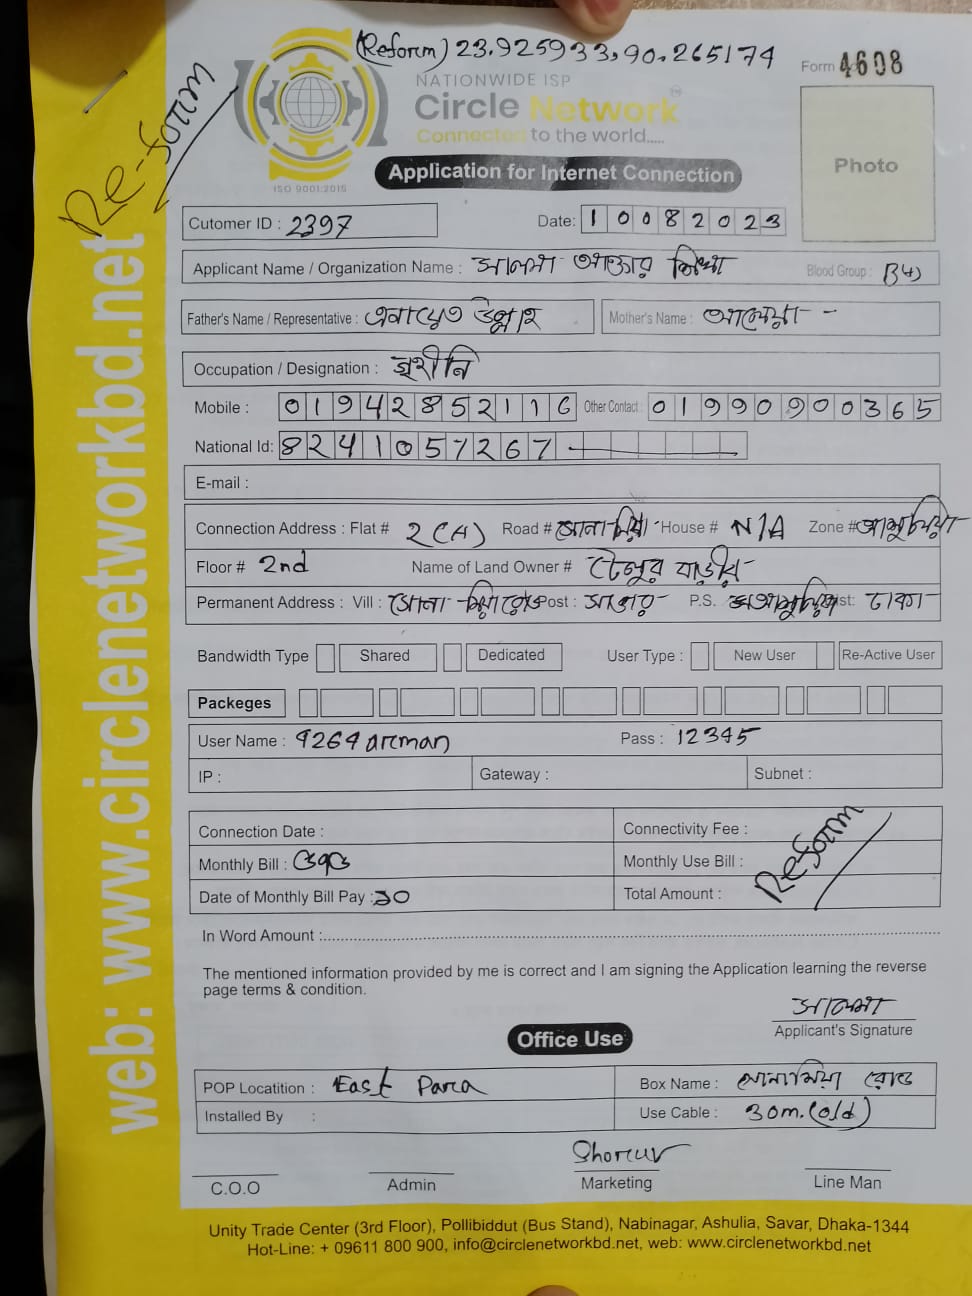 (Reform) 23.925933,90.265174
Form 4608
Re-form
NATIONWIDE ISP
Circle Network
Connected to the world.....
ISO 9001:2015
Application for Internet Connection
Photo
Cutomer ID : 2397
Date: 10082023
Applicant Name / Organization Name : সালমা আক্তার
Blood Group :
Father's Name / Representative : এনায়েত উল্লাহ
Mother's Name :
Occupation / Designation : গৃহীনি
Mobile : 01942852116 Other Contact: 01990900365
National Id: 8241057267
E-mail :
Connection Address : Flat # 2(A) Road # সোনা মিয়া House # N/A Zone #
Floor # 2nd Name of Land Owner #
Permanent Address : Vill : সোনা মিয়া রোড Post : সাভার P.S. Dist: ঢাকা
Bandwidth Type Shared Dedicated User Type : New User Re-Active User
Packeges
User Name : 9264arman Pass : 12345
IP : Gateway : Subnet :
Connection Date : Connectivity Fee :
Monthly Bill : Monthly Use Bill :
Date of Monthly Bill Pay : 30 Total Amount :
Reform
In Word Amount :
The mentioned information provided by me is correct and I am signing the Application learning the reverse
page terms & condition.
সালমা
Applicant's Signature
Office Use
POP Locatition : East Para Box Name : সোনামিয়া রোড
Installed By : Use Cable : 30m.(old)
C.O.O Admin Marketing Line Man
Unity Trade Center (3rd Floor), Pollibiddut (Bus Stand), Nabinagar, Ashulia, Savar, Dhaka-1344
Hot-Line: + 09611 800 900, info@circlenetworkbd.net, web: www.circlenetworkbd.net
web: www.circlenetworkbd.net